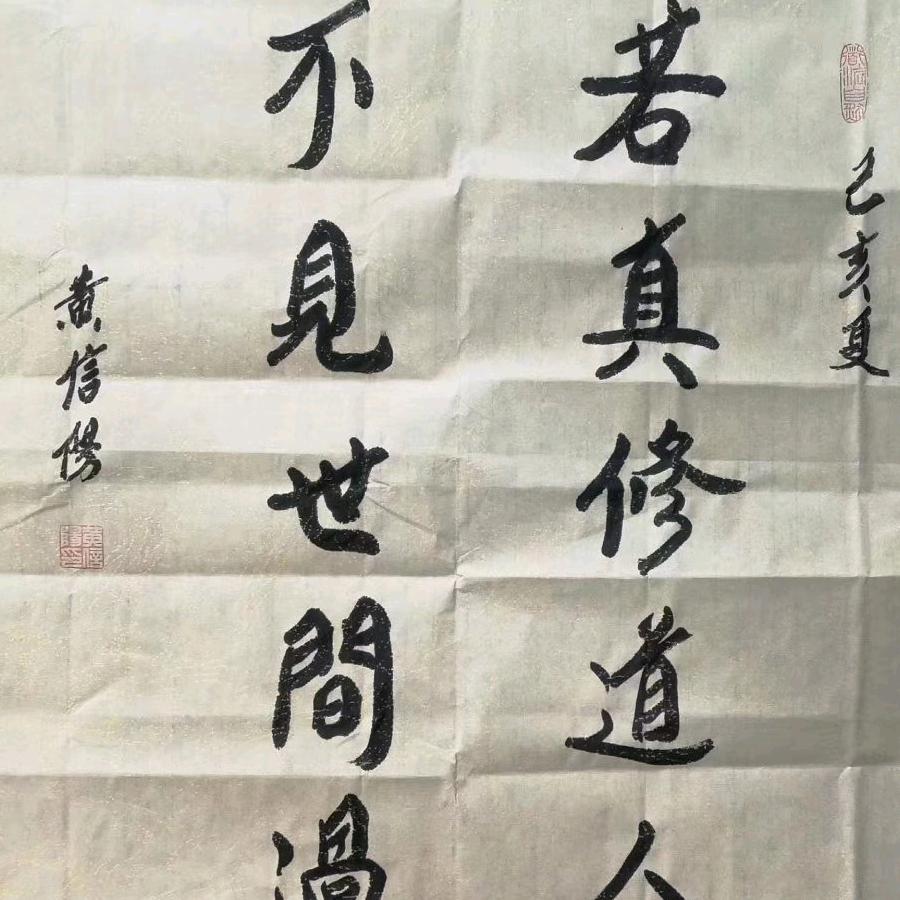 己亥夏
若真修道人
不見世間過
黄信